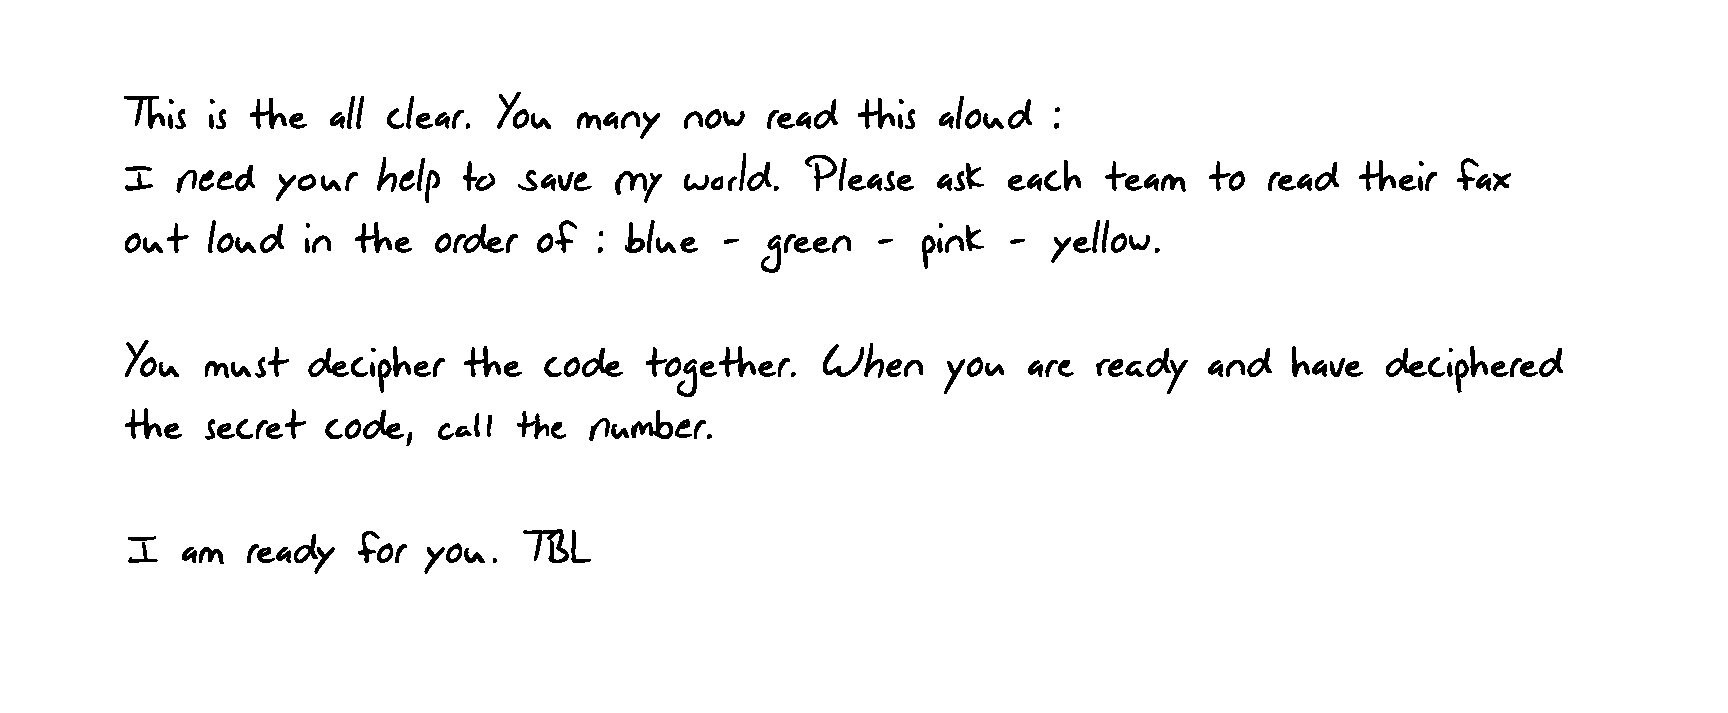 This is the all clear. You many now read this aloud :
I need your help to save my world. Please ask each team to read their fax
out loud in the order of : blue - green - pink - yellow.
You must decipher the code together. When you are ready and have deciphered
the secret code, call the number.
I am ready for you. TBL